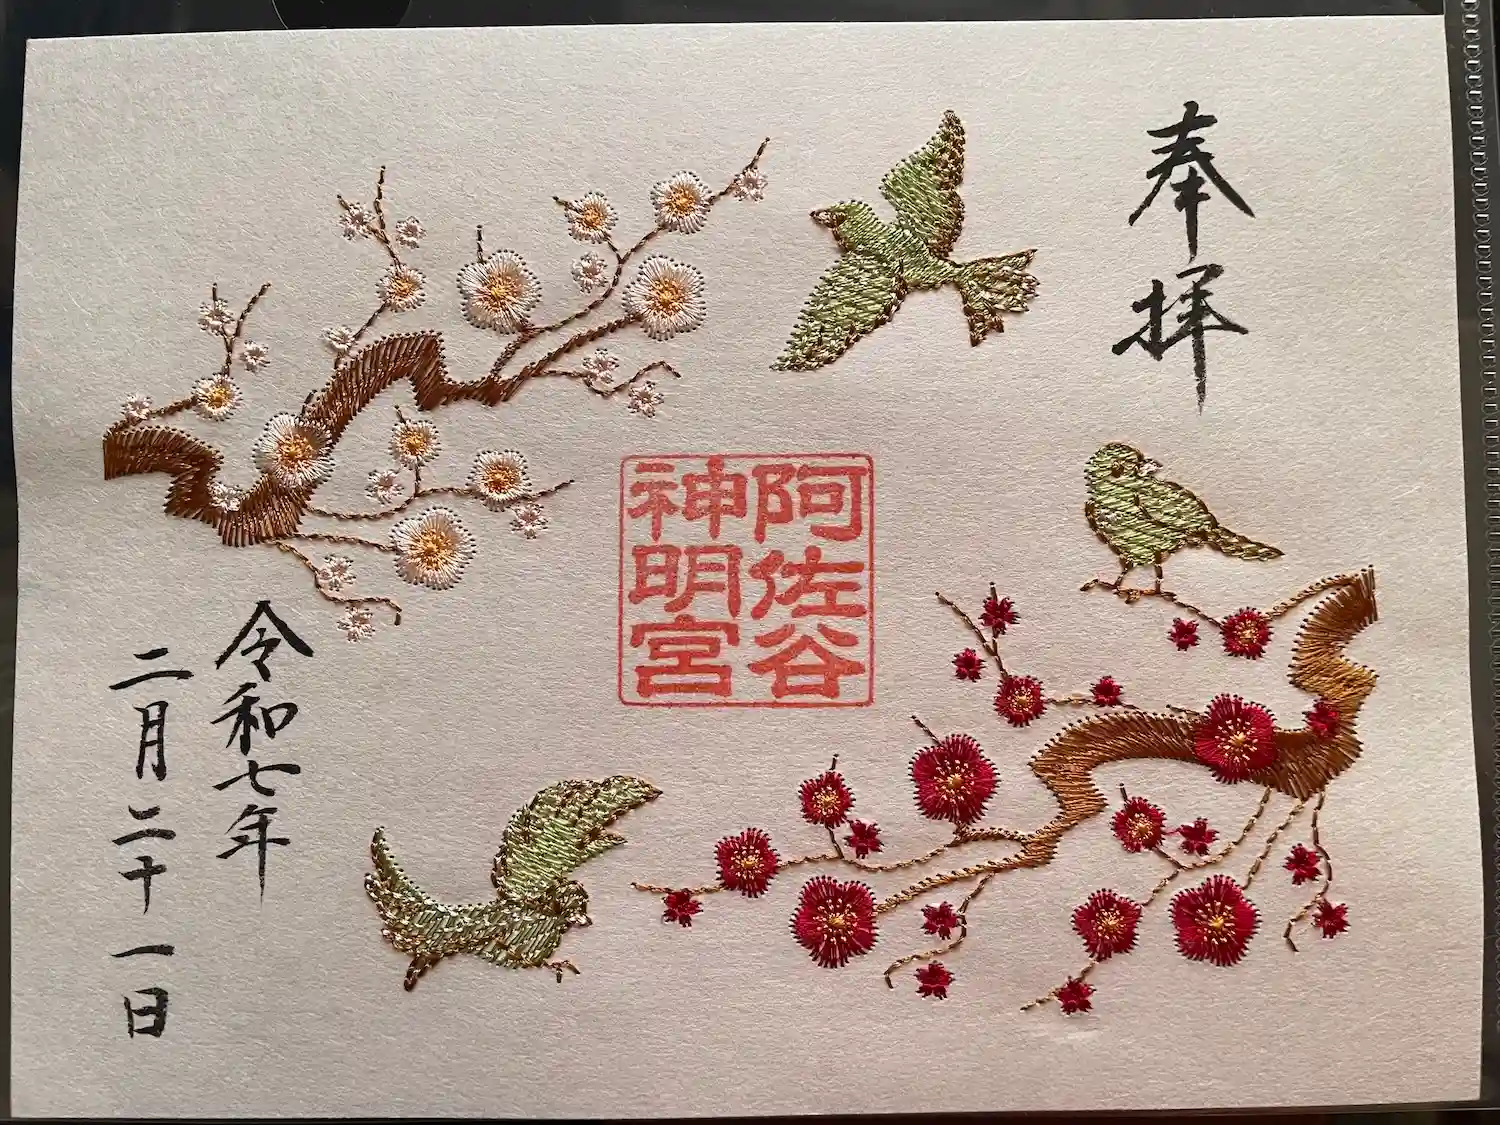 奉拝
阿佐谷
神明宮
令和七年
二月二十一日